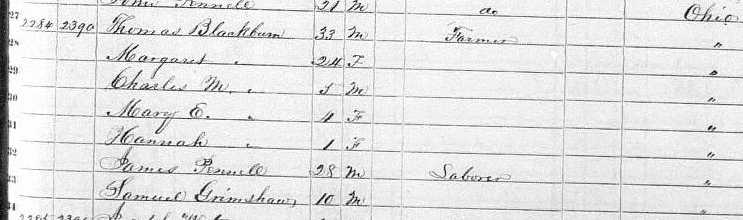 27 Pennell 21 M do Ohio
28 2284 2390 Thomas Blackburn 33 M Farmer "
29 Margaret " 24 F "
30 Charles M. " 5 M "
31 Mary E. " 4 F "
32 Hannah " 1 F "
33 James Pennell 28 M Laborer "
34 Samuel Grimshaw, 10 M "